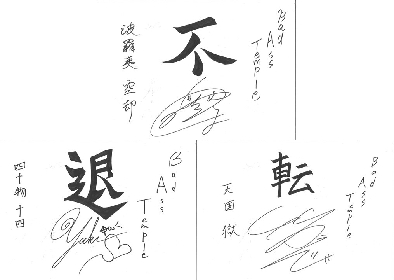 不
Bad
Ass
Temple
波羅夷 空却
退
Bad
Ass
Temple
四十物 十四
転
Bad
Ass
Temple
天国 獄